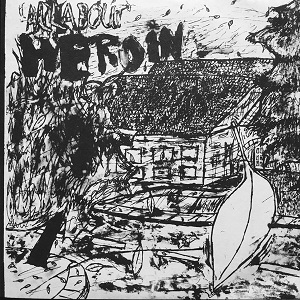 ALL ABOUT
HEROIN